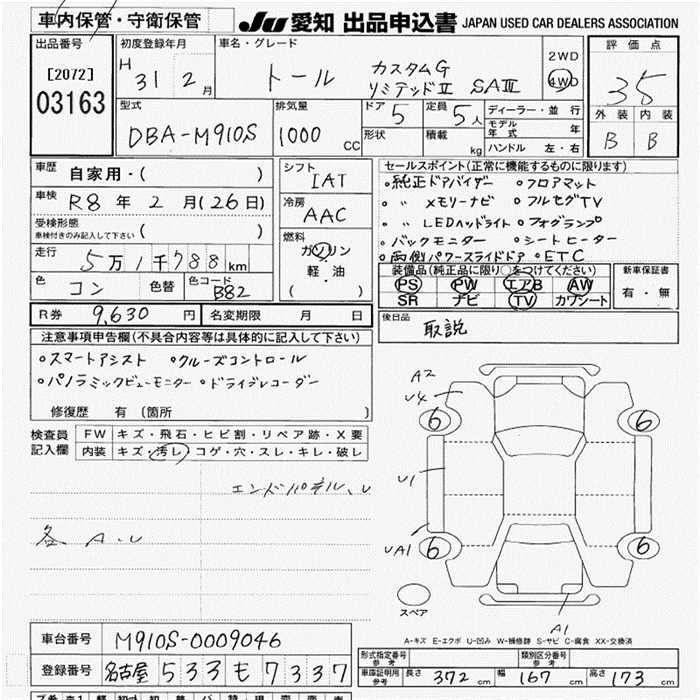 車内保管・守衛保管 JU愛知 出品申込書 JAPAN USED CAR DEALERS ASSOCIATION
出品番号 初度登録年月 車名・グレード 評価点
[2072] H 31 2月 トール カスタムG 2WD 35
リミテッドⅡ SAⅢ 4WD
03163 外装 内装
型式 排気量 ドア 5 定員 5人 ディーラー・並行 B B
DBA-M910S 1000 CC 形状 積載 kg モデル年式 年
ハンドル 左・右
車歴 自家用・( ) シフト IAT セールスポイント(正常に機能するものに限ります)
車検 R8年 2月(26日) 冷房 AAC 。純正ドアバイザー 。フロアマット
。〃 メモリーナビ 。フルセグTV
受検形態 車検付きのみ記入して下さい ( ) 。〃 LEDヘッドライト 。フォグランプ
燃料 ガソリン 。バックモニター 。シートヒーター
走行 5万1千788km 軽・油 。両側パワースライドドア 。ETC
色 コン 色替 色コード B82 ( ) 装備品(純正品に限り○をつけてください) 新車保証書
PS PW エアB AW 有・無
SR ナビ TV カワシート
R券 9,630円 名変期限 月 日 後日品 取説
注意事項申告欄(不具合内容等は具体的に記入して下さい)
。スマートアシスト 。クルーズコントロール
。パノラミックビューモニター 。ドライブレコーダー
修復歴 有 (箇所 )
検査員記入欄 FW キズ・飛石・ヒビ割・リペア跡・X要
内装 キズ・汚レ・コゲ・穴・スレ・キレ・破レ
エンドパネル、U
各 A.U
A2
U4
6 6
U1
UA1
6 6
スペア
A1
A-キズ E-エクボ U-凹み W-補修跡 S-サビ C-腐食 XX-交換済
車台番号 M910S-0009046
型式指定番号 参考 類別区分番号 参考
登録番号 名古屋 533 も 7337
車庫証明用 参考 長さ 372 cm 幅 167 cm 高さ 173 cm